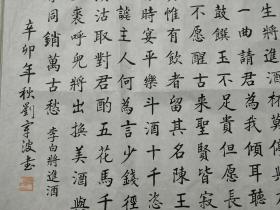 生將進酒杯莫停與
一曲請君為我傾耳聽
鼓饌玉不足貴但願長
不願醒古來聖賢皆寂
惟有飲者留其名陳王
時宴平樂斗酒十千恣
謔主人何為言少錢徑
沽取對君酌五花馬千
裘呼兒將出換美酒與
同銷萬古愁 李白將進酒
辛卯年秋劉波書